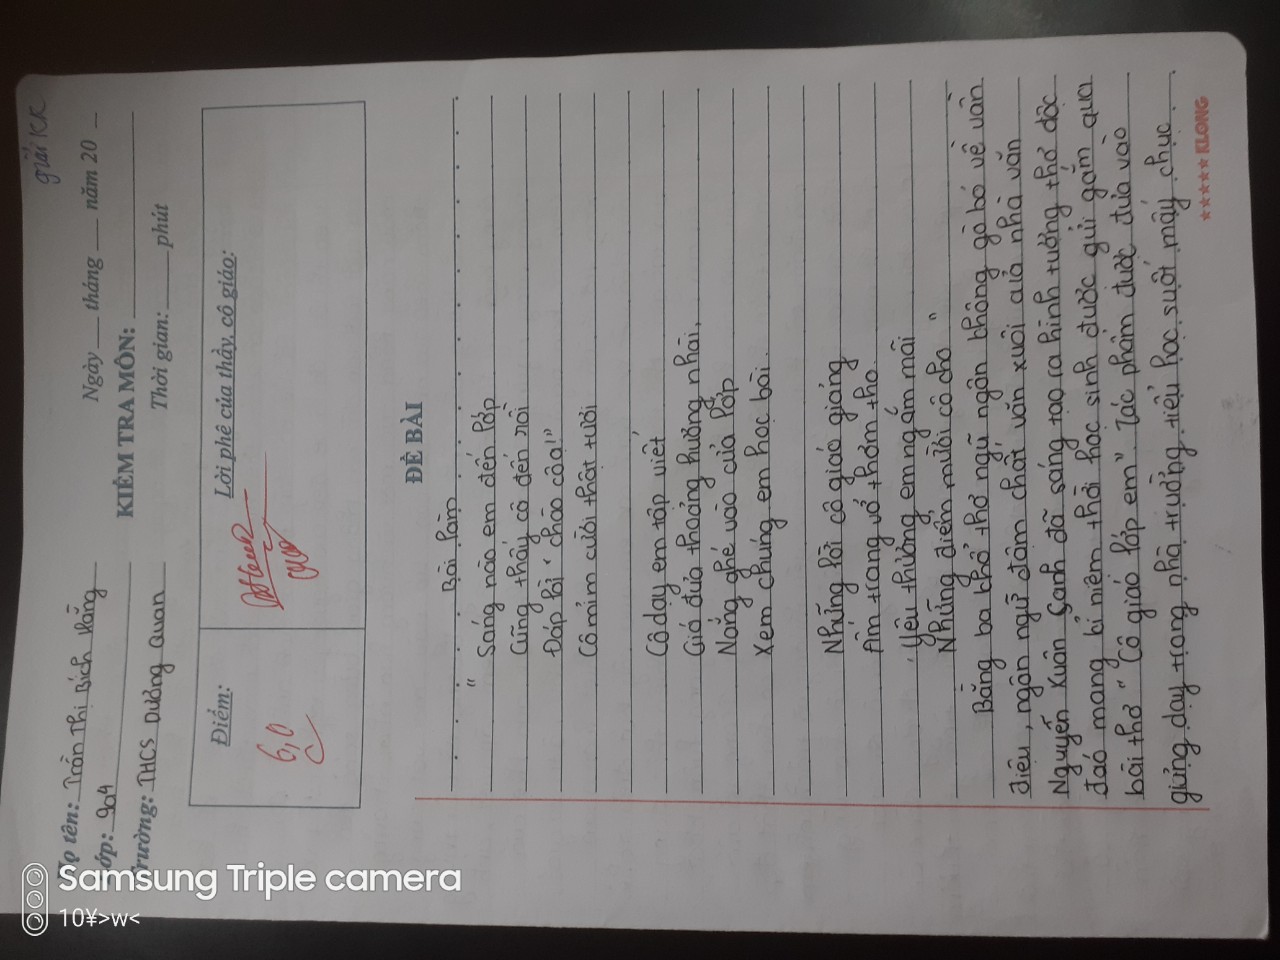 giải KK
Ngày ___ tháng ___ năm 20
Họ tên: Trần Thị Bích Hằng
Lớp: 9a4
KIỂM TRA MÔN:
Trường: THCS Dương Quan
Thời gian: ___ phút
Điểm:
Lời phê của thầy, cô giáo:
6,0
ĐỀ BÀI
Bài làm
"
Sáng nào em đến lớp
Cũng thấy cô đến rồi
Đáp lời "chào cô ạ!"
Cô mỉm cười thật tươi
Cô dạy em tập viết
Gió đưa thoảng hương nhài,
Nắng ghé vào cửa lớp
Xem chúng em học bài.
Những lời cô giáo giảng
Ấm trang vở thơm tho
Yêu thương em ngắm mãi
Những điểm mười cô cho "
Bằng ba khổ thơ ngũ ngôn không gò bó về vần
điệu, ngôn ngữ đậm chất văn xuôi của nhà văn
Nguyễn Xuân Sanh đã sáng tạo ra hình tượng thơ độc
đáo mang kỉ niệm thời học sinh được gửi gắm qua
bài thơ " Cô giáo lớp em" Tác phẩm được đưa vào
giảng dạy trong nhà trường tiểu học suốt mấy chục
★★★★★ KLONG
Samsung Triple camera
10¥>w<